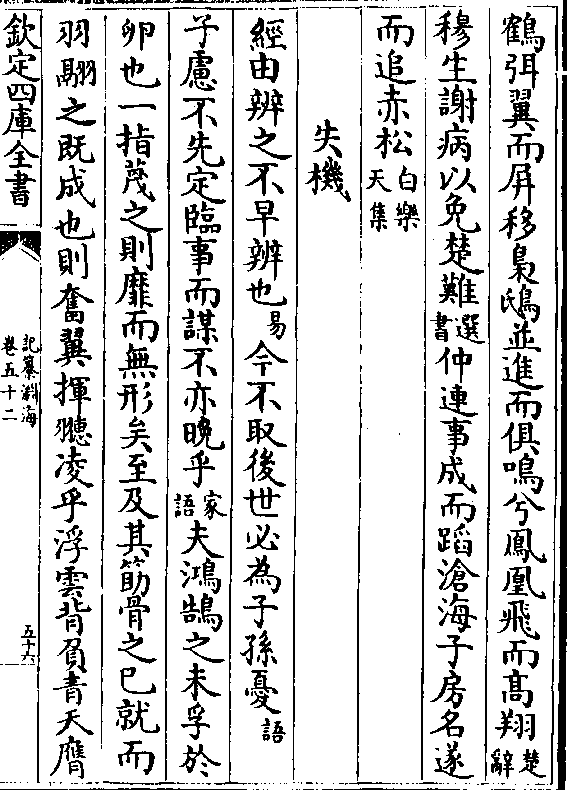 鶴弭翼而屏移梟鴟並進而俱鳴兮鳳凰飛而高翔楚辭
穆生謝病以免楚難選書仲連事成而蹈滄海子房名遂
而追赤松白樂天集
失機
經由辨之不早辨也易今不取後世必為子孫憂語
子慮不先定臨事而謀不亦晚乎家語夫鴻鵠之未孚於
卵也一指蔑之則靡而無形矣至及其筋骨之已就而
羽翮之既成也則奮翼揮䎘凌乎浮雲背負青天膺
欽定四庫全書
記纂淵海
卷五十二
五十六